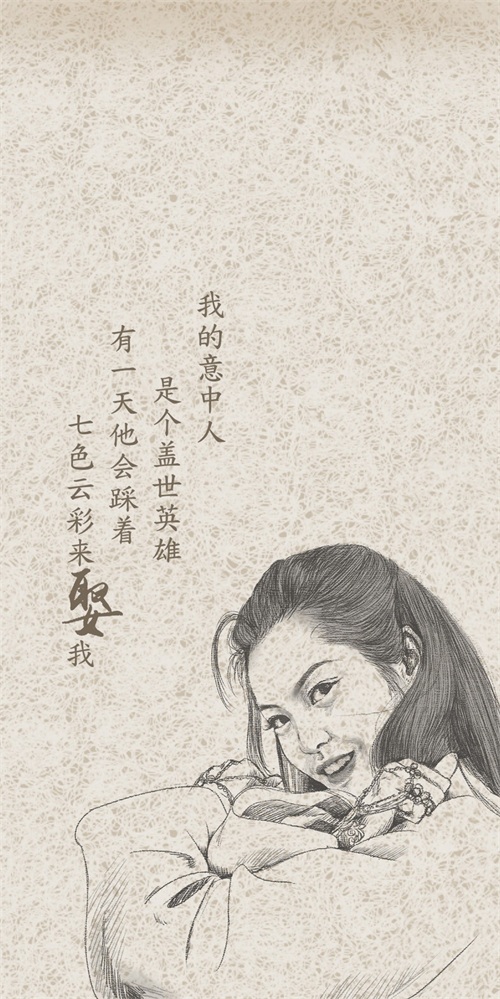 我的意中人
是个盖世英雄
有一天他会踩着
七色云彩来娶我